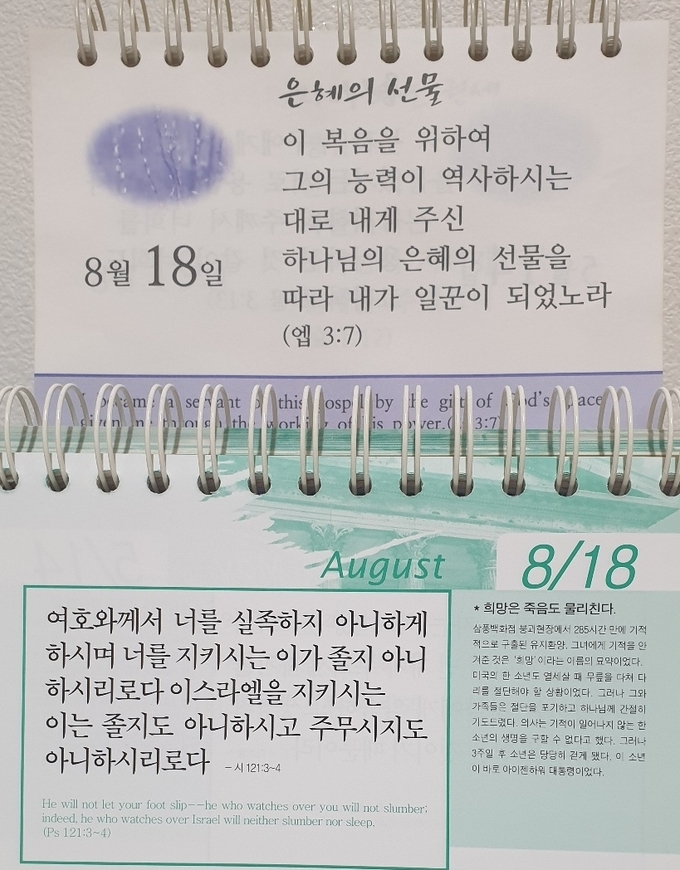 은혜의 선물
이 복음을 위하여
그의 능력이 역사하시는
대로 내게 주신
하나님의 은혜의 선물을
따라 내가 일꾼이 되었노라
(엡 3:7)
8월 18일
I became a servant of this gospel by the gift of God's grace
given me through the working of his power.( 3:7)
August
8/18
여호와께서 너를 실족하지 아니하게
하시며 너를 지키시는 이가 졸지 아니
하시리로다 이스라엘을 지키시는
이는 졸지도 아니하시고 주무시지도
아니하시리로다 -시 121:3~4
He will not let your foot slip--he who watches over you will not slumber;
indeed, he who watches over Israel will neither slumber nor sleep.
(Ps 121:3~4)
* 희망은 죽음도 물리친다.
삼풍백화점 붕괴현장에서 285시간 만에 기적
적으로 구출된 유지환양. 그녀에게 기적을 안
겨준 것은 '희망'이라는 이름의 묘약이었다.
미국의 한 소년도 열세살 때 무릎을 다쳐 다
리를 절단해야 할 상황이었다. 그러나 그와
가족들은 절단을 포기하고 하나님께 간절히
기도드렸다. 의사는 기적이 일어나지 않는 한
소년의 생명을 구할 수 없다고 했다. 그러나
3주일 후 소년은 당당히 걷게 됐다. 이 소년
이 바로 아이젠하워 대통령이었다.